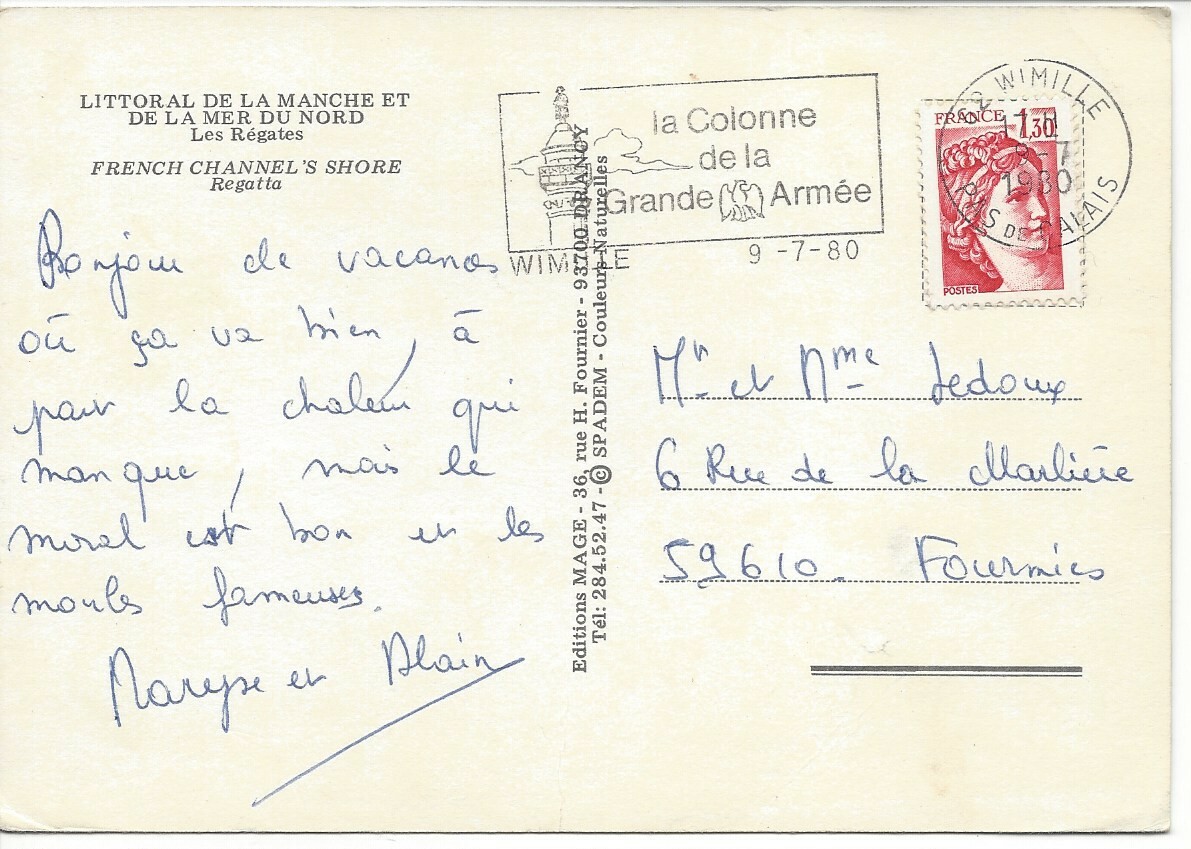 LITTORAL DE LA MANCHE ET
DE LA MER DU NORD
Les Régates
FRENCH CHANNEL'S SHORE
Regatta
la Colonne
de la
Grande Armée
WIMILLE
9 -7-80
62 WIMILLE
17 H
9-7
1980
PAS DE CALAIS
FRANCE 1,30
POSTES
Bonjour de vacances
où ça va bien, à
part la chaleur qui
manque, mais le
moral est bon et les
moules fameuses.
Maryse et Alain
Editions MAGE - 36, rue H. Fournier - 93700 DRANCY
Tél: 284.52.47 - © SPADEM - Couleurs Naturelles
Mr et Mme Ledoux
6 Rue de la Marlière
59610. Fourmies